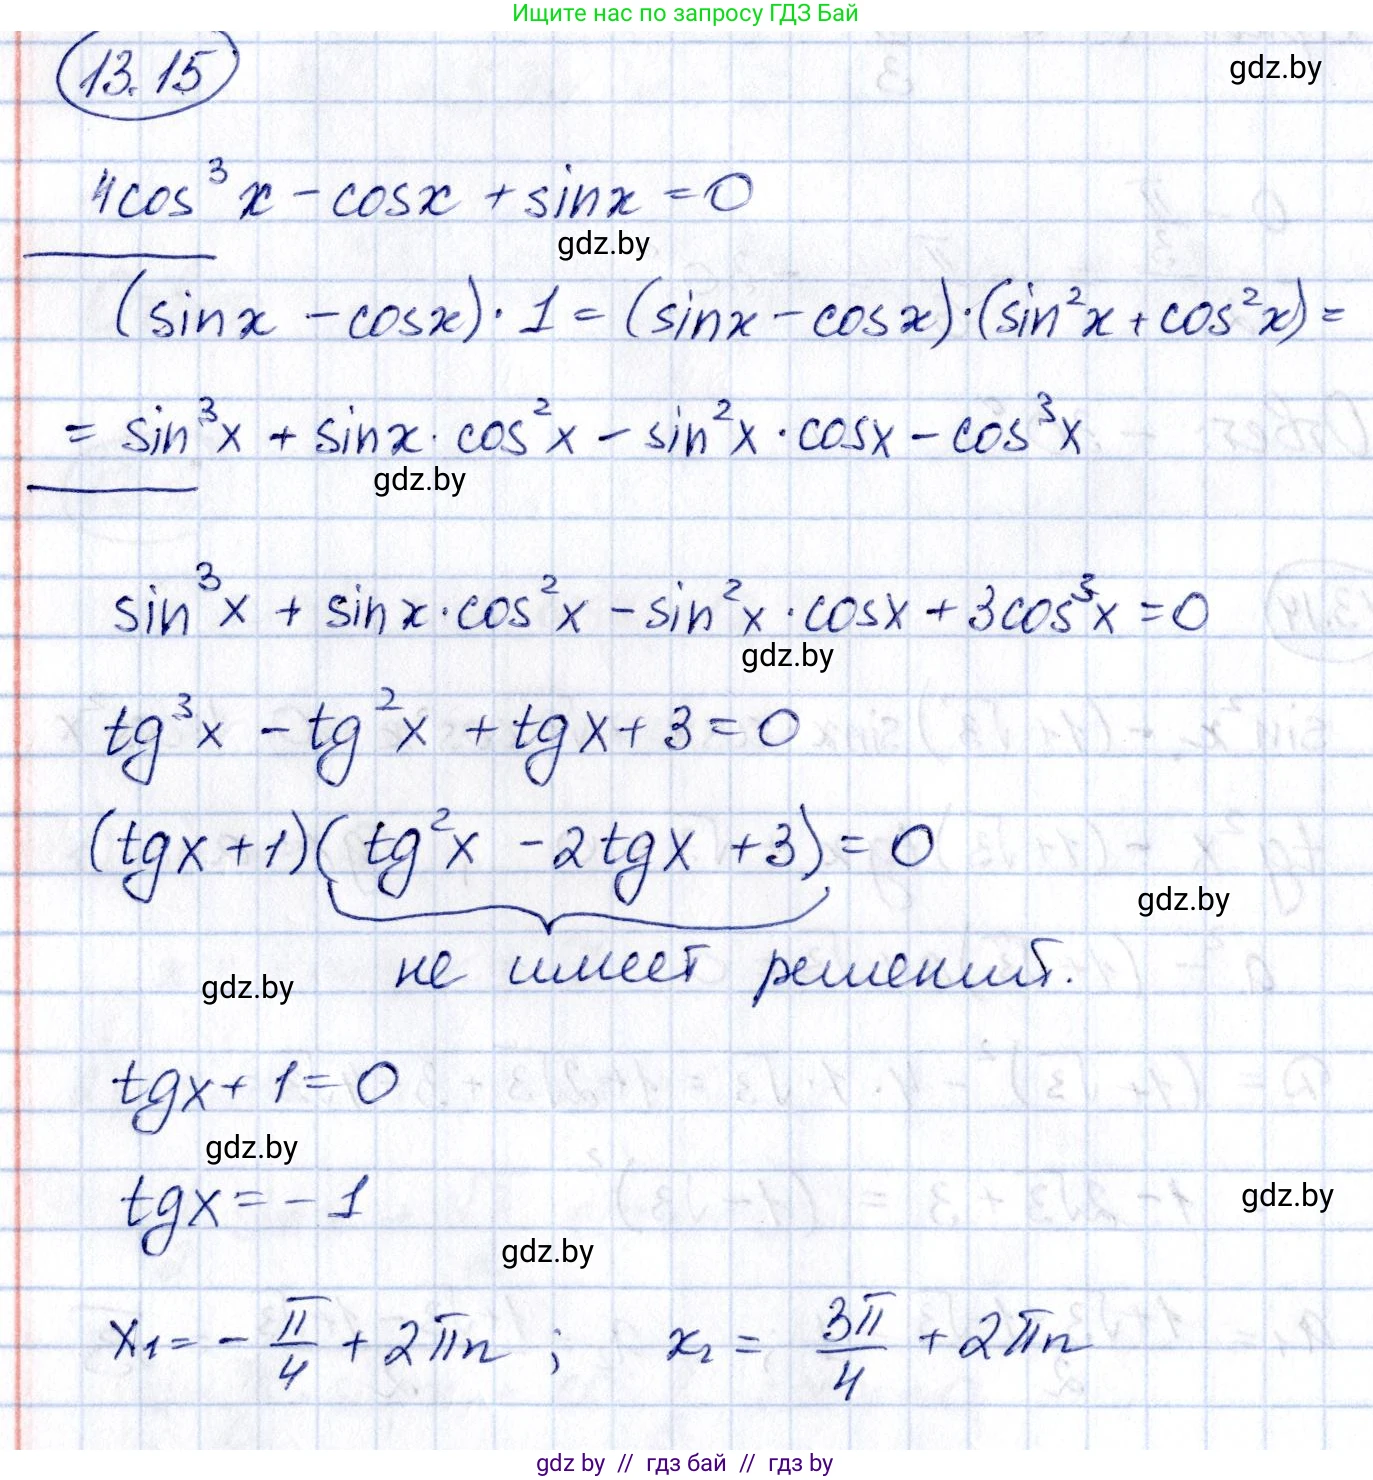 Ищите нас по запросу ГДЗ Бай
13.15
gdz.by
4cos³x - cosx + sinx = 0
gdz.by
(sinx - cosx) · 1 = (sinx - cosx) · (sin²x + cos²x) =
= sin³x + sinx · cos²x - sin²x · cosx - cos³x
gdz.by
sin³x + sinx · cos²x - sin²x · cosx + 3cos³x = 0
gdz.by
tg³x - tg²x + tgx + 3 = 0
(tgx + 1)(tg²x - 2tgx + 3) = 0
gdz.by
не имеет решений.
gdz.by
tgx + 1 = 0
gdz.by
tgx = - 1
gdz.by
gdz.by
x₁ = - π/4 + 2πn ; x₂ = 3π/4 + 2πn
gdz by // гдз бай // гдз by